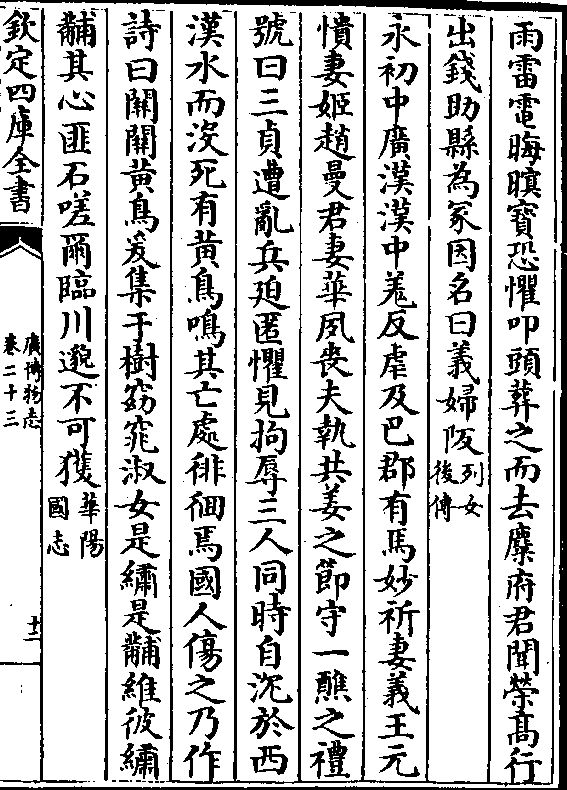 雨雷電晦暝寳恐懼叩頭葬之而去麋府君聞榮髙行
出錢助縣為冢因名曰義婦阪列女後傳
永初中廣漢漢中羗反虐及巴郡有馬妙祈妻義王元
憒妻姬趙蔓君妻華夙喪夫執共姜之節守一醮之禮
號曰三貞遭亂兵廹匿懼見拘辱三人同時自沉於西
漢水而沒死有黄鳥鳴其亡處徘徊焉國人傷之乃作
詩曰闗闗黄鳥爰集于樹窈窕淑女是繡是黼維彼繡
黼其心匪石嗟爾臨川邈不可獲華陽國志
欽定四庫全書
廣博物志
卷二十三
十三